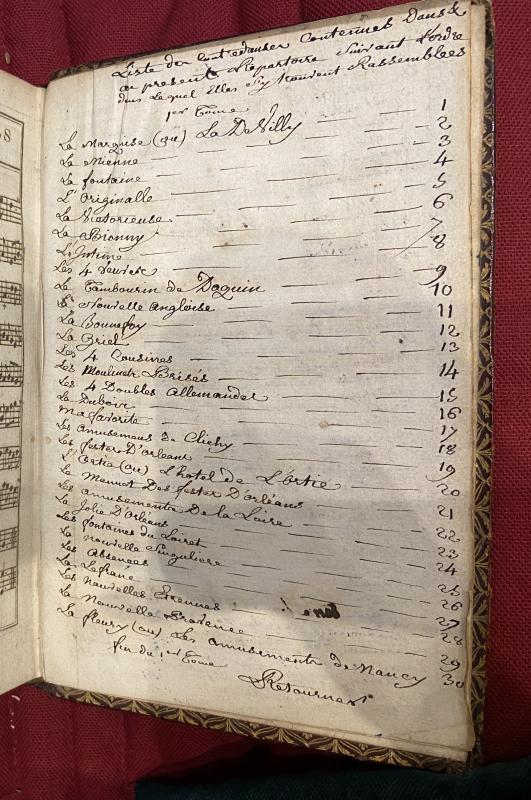 Liste des Contredanses Contenues Dans Le
présent Répartoire Suivant L'ordre
dans Lequel Elles S'y trouvent Rassemblées
1er Tome
La Marquise (ou) La De Villy 1
La Vienne 2
La fontaine 3
L'Originalle 4
La Victorieuse 5
La Bionny 6
L'Intime 7
Les 4 8
Le Tambourin de Daquin 9
La Nouvelle Angloise 10
La Bonnefoy 11
La Briel 12
Les 4 Cousines 13
Les Moulinets Brisés 14
Les 4 Doubles Allemandes 15
La Duboir 16
Ma favorite 17
Les Amusemens de Clichy 18
Les fester D'orleans 19
L'Ortie (ou) L'hotel de L'Ortie 20
Le Menuet Des fester D'orléans 21
Les amusements De la Loire 22
La Jolie D'Orléans 23
Les fontaines du Loiret 24
La nouvelle Singuliere 25
Les Absences 26
La Lefrané 27
Les nouvelles Etrennes 28
La Nouvelle Provence 29
La fleury (ou) Les amusements de Nancy 30
fin du 1er Tome
Retournez
8